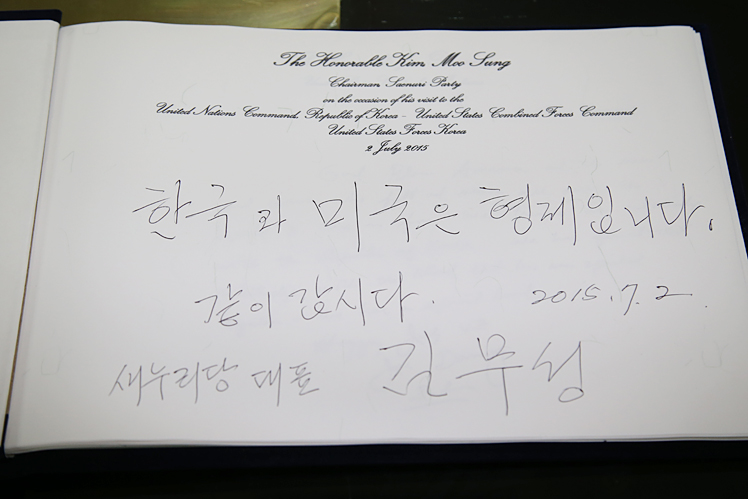 The Honorable Kim Moo Sung
Chairman Saenuri Party
on the occasion of his visit to the
United Nations Command, Republic of Korea - United States Combined Forces Command
United States Forces Korea
2 July 2015
한국과 미국은 형제입니다.
같이 갑시다. 2015. 7. 2.
새누리당 대표 김무성